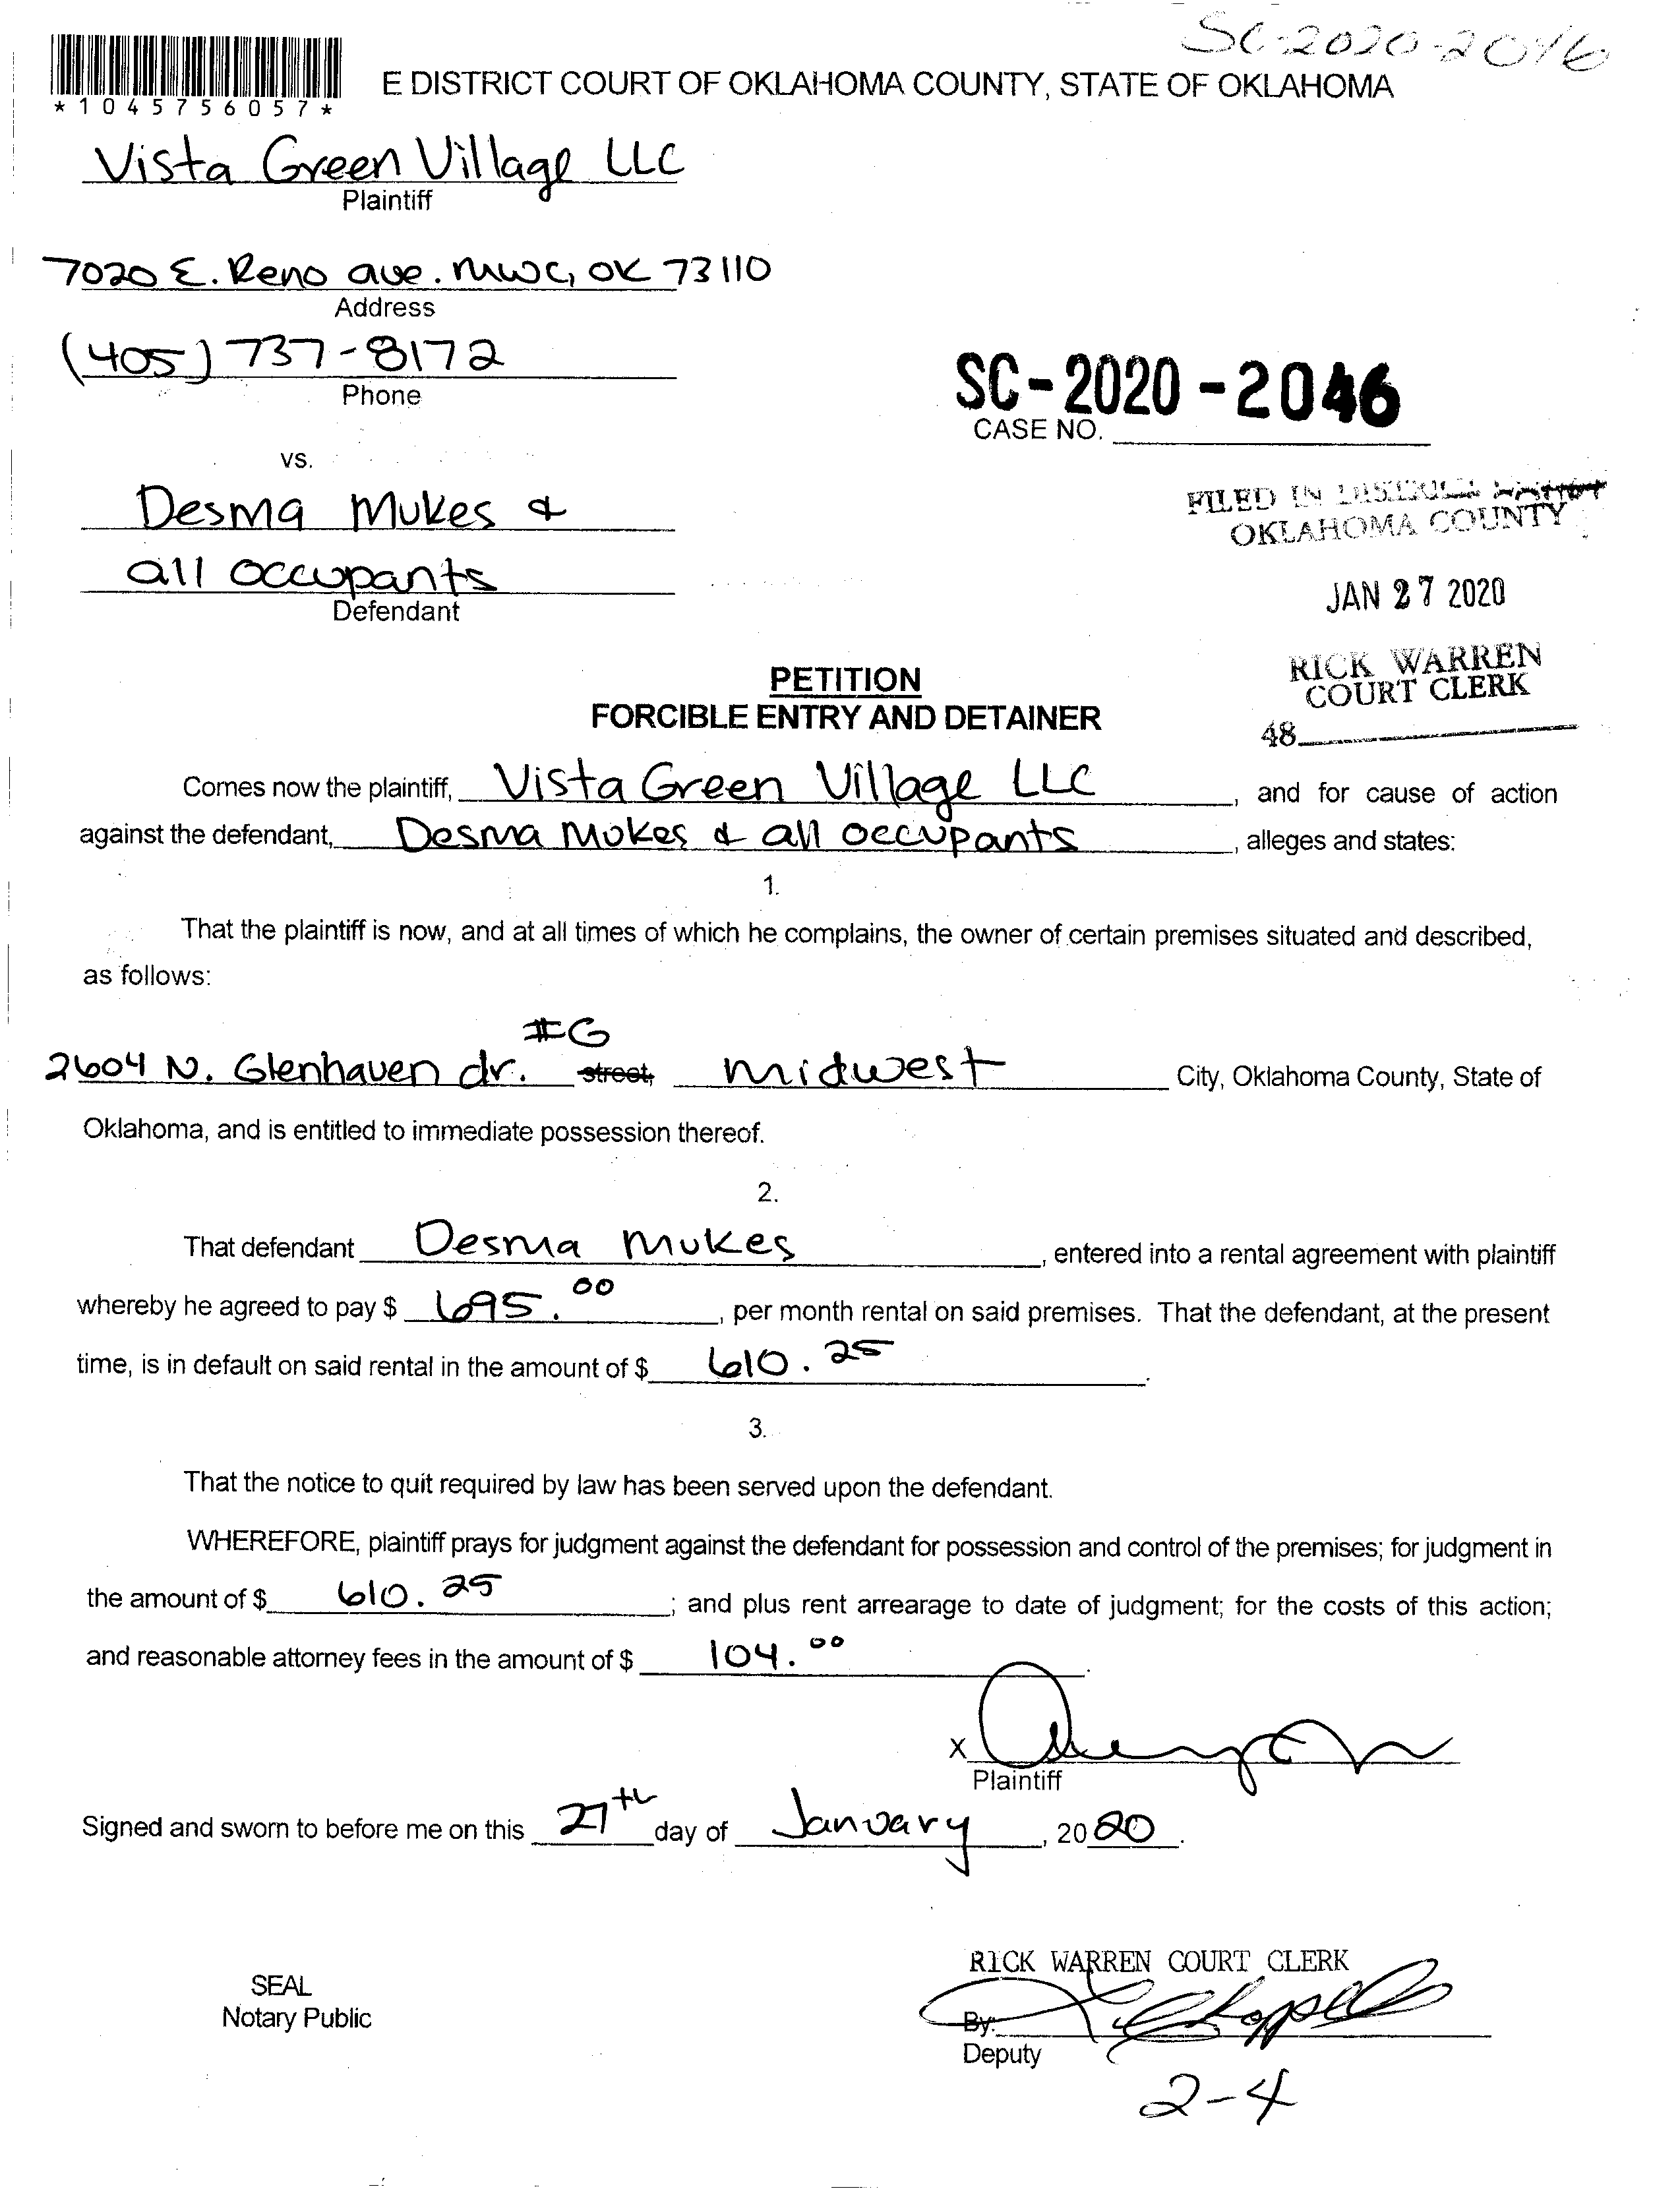 SC-2020-2046
*1045756057*
E DISTRICT COURT OF OKLAHOMA COUNTY, STATE OF OKLAHOMA
Vista Green Village LLC
Plaintiff
7020 E. Reno ave. MWC, OK 73110
Address
(405) 737-8172
Phone
SC-2020-2046
CASE NO.
vs.
Desma Mukes &
all occupants
Defendant
FILED IN DISTRICT COURT
OKLAHOMA COUNTY
JAN 27 2020
RICK WARREN
COURT CLERK
48
PETITION
FORCIBLE ENTRY AND DETAINER
Comes now the plaintiff, Vista Green Village LLC, and for cause of action
against the defendant, Desma Mukes & all occupants, alleges and states:
1.
That the plaintiff is now, and at all times of which he complains, the owner of certain premises situated and described,
as follows:
#G
2604 N. Glenhaven dr. street, midwest City, Oklahoma County, State of
Oklahoma, and is entitled to immediate possession thereof.
2.
That defendant Desma Mukes, entered into a rental agreement with plaintiff
whereby he agreed to pay $ 695.00, per month rental on said premises. That the defendant, at the present
time, is in default on said rental in the amount of $ 610.25.
3.
That the notice to quit required by law has been served upon the defendant.
WHEREFORE, plaintiff prays for judgment against the defendant for possession and control of the premises; for judgment in
the amount of $ 610.25; and plus rent arrearage to date of judgment; for the costs of this action;
and reasonable attorney fees in the amount of $ 104.00.
X
Plaintiff
Signed and sworn to before me on this 27th day of January, 2020.
RICK WARREN COURT CLERK
SEAL
Notary Public
By:
Deputy
2-4